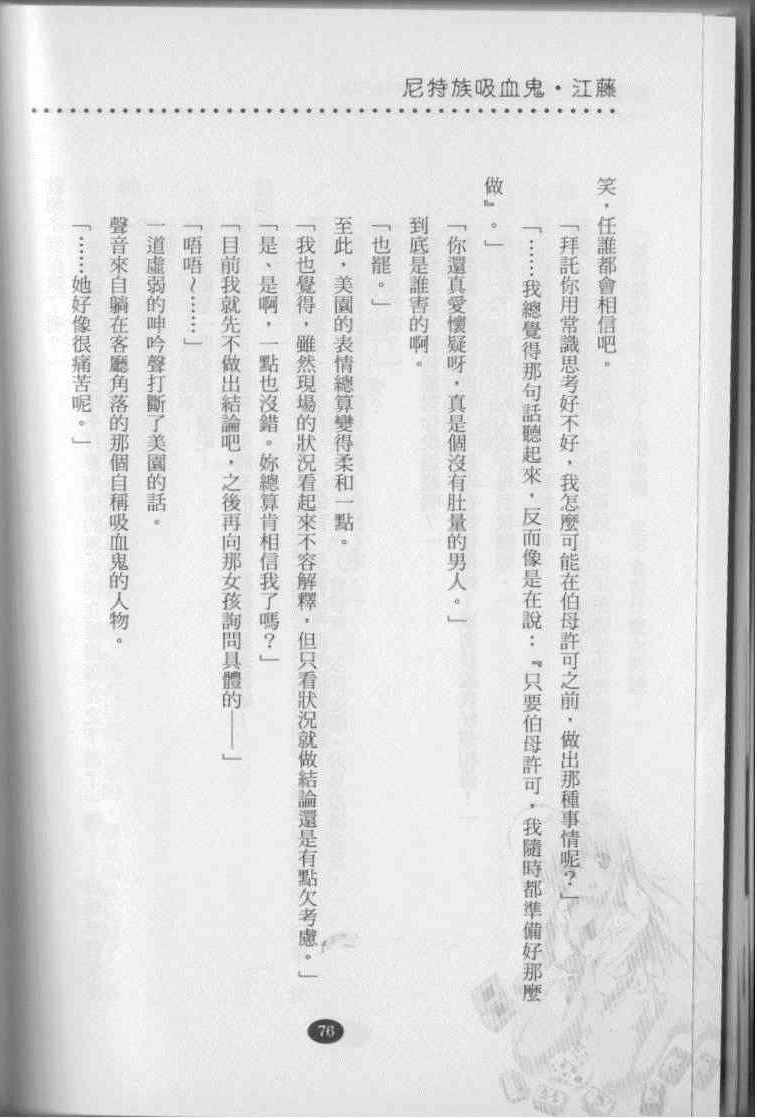 尼特族吸血鬼・江藤
笑，任誰都會相信吧。
「拜託你用常識思考好不好，我怎麼可能在伯母許可之前，做出那種事情呢？」
「……我總覺得那句話聽起來，反而像是在說：『只要伯母許可，我隨時都準備好那麼
做』。」
「你還真愛懷疑呀，真是個沒有肚量的男人。」
到底是誰害的啊。
「也罷。」
至此，美園的表情總算變得柔和一點。
「我也覺得，雖然現場的狀況看起來不容解釋，但只看狀況就做結論還是有點欠考慮。」
「是、是啊，一點也沒錯。妳總算肯相信我了嗎？」
「目前我就先不做出結論吧，之後再向那女孩詢問具體的——」
「唔唔～……」
一道虛弱的呻吟聲打斷了美園的話。
聲音來自躺在客廳角落的那個自稱吸血鬼的人物。
「……她好像很痛苦呢。」
76